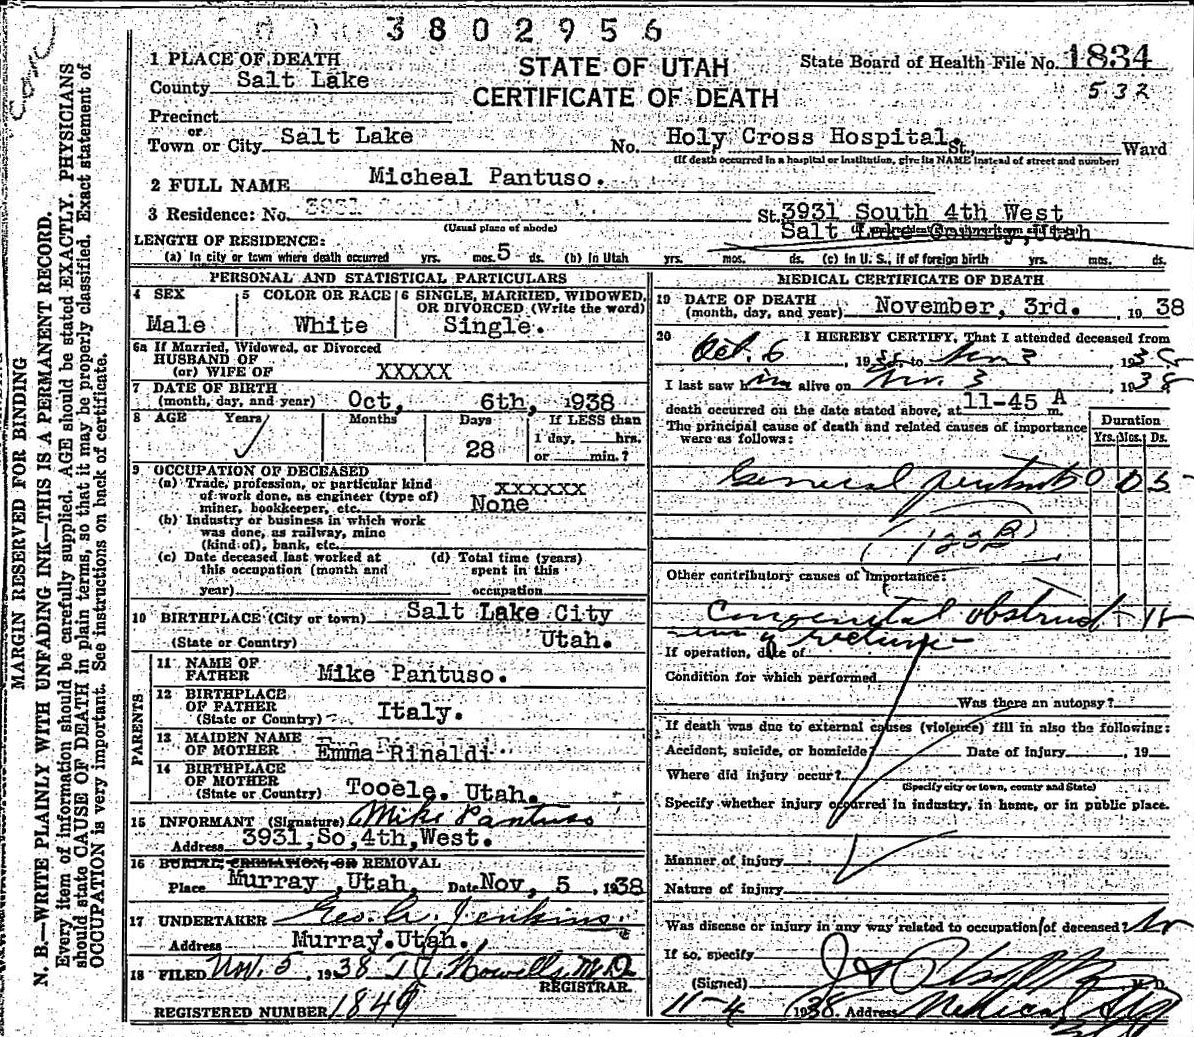 3802956
1 PLACE OF DEATH
County Salt Lake
STATE OF UTAH
CERTIFICATE OF DEATH
State Board of Health File No. 1834
532
Precinct
or
Town or City Salt Lake No. Holy Cross Hospital. St., Ward
(If death occurred in a hospital or institution, give its NAME instead of street and number)
2 FULL NAME Micheal Pantuso.
3 Residence: No. 3931 St. 3931 South 4th West
(Usual place of abode) Salt Lake County, Utah
LENGTH OF RESIDENCE:
(a) In city or town where death occurred yrs. mos. 5 ds. (b) In Utah yrs. mos. ds. (c) In U. S., if of foreign birth yrs. mos. ds.
PERSONAL AND STATISTICAL PARTICULARS
4 SEX
Male
5 COLOR OR RACE
White
6 SINGLE, MARRIED, WIDOWED,
OR DIVORCED (Write the word)
Single.
6a If Married, Widowed, or Divorced
HUSBAND OF
(or) WIFE OF XXXXX
7 DATE OF BIRTH
(month, day, and year) Oct, 6th, 1938
8 AGE Years Months Days If LESS than
28 1 day, hrs.
or min.?
9. OCCUPATION OF DECEASED
(a) Trade, profession, or particular kind XXXXXX
of work done, as engineer (type of)
miner, bookkeeper, etc. None
(b) Industry or business in which work
was done, as railway, mine
(kind of), bank, etc.
(c) Date deceased last worked at (d) Total time (years)
this occupation (month and spent in this
year) occupation
10 BIRTHPLACE (City or town) Salt Lake City
(State or Country) Utah.
PARENTS
11 NAME OF
FATHER Mike Pantuso.
12 BIRTHPLACE
OF FATHER
(State or Country) Italy.
13 MAIDEN NAME
OF MOTHER Emma Rinaldi
14 BIRTHPLACE
OF MOTHER
(State or Country) Tooele. Utah.
15 INFORMANT (Signature) Mike Pantuso
Address 3931, So, 4th, West.
16 BURIAL, CREMATION, OR REMOVAL
Place Murray, Utah, Date Nov, 5, 1938
17 UNDERTAKER Geo. A. Jenkins.
Address Murray. Utah.
18 FILED Nov. 5, 1938 T J Howells, M.D.
REGISTRAR.
REGISTERED NUMBER 1849
MEDICAL CERTIFICATE OF DEATH
19 DATE OF DEATH
(month, day, and year) November, 3rd. , 1938
20 I HEREBY CERTIFY, That I attended deceased from
Oct. 6, 1938, to Nov 3, 1938
I last saw him alive on Nov. 3 1938
death occurred on the date stated above, at 11-45 A m.
The principal cause of death and related causes of importance
were as follows:
Duration
Yrs. Mos. Ds.
General 0 0 5
(122B)
Other contributory causes of importance:
Congenital obstruct
rectum
If operation, date of
Condition for which performed
Was there an autopsy?
If death was due to external causes (violence) fill in also the following:
Accident, suicide, or homicide? Date of injury , 19
Where did injury occur?
(Specify city or town, county and State)
Specify whether injury occurred in industry, in home, or in public place.
Manner of injury
Nature of injury
Was disease or injury in any way related to occupation of deceased? No
If so, specify
(Signed) M. D.
11-4 1938. Address Medical
MARGIN RESERVED FOR BINDING
N. B.—WRITE PLAINLY WITH UNFADING INK—THIS IS A PERMANENT RECORD.
Every item of information should be carefully supplied. AGE should be stated EXACTLY. PHYSICIANS
should state CAUSE OF DEATH in plain terms, so that it may be properly classified. Exact statement of
OCCUPATION is very important. See instructions on back of certificate.